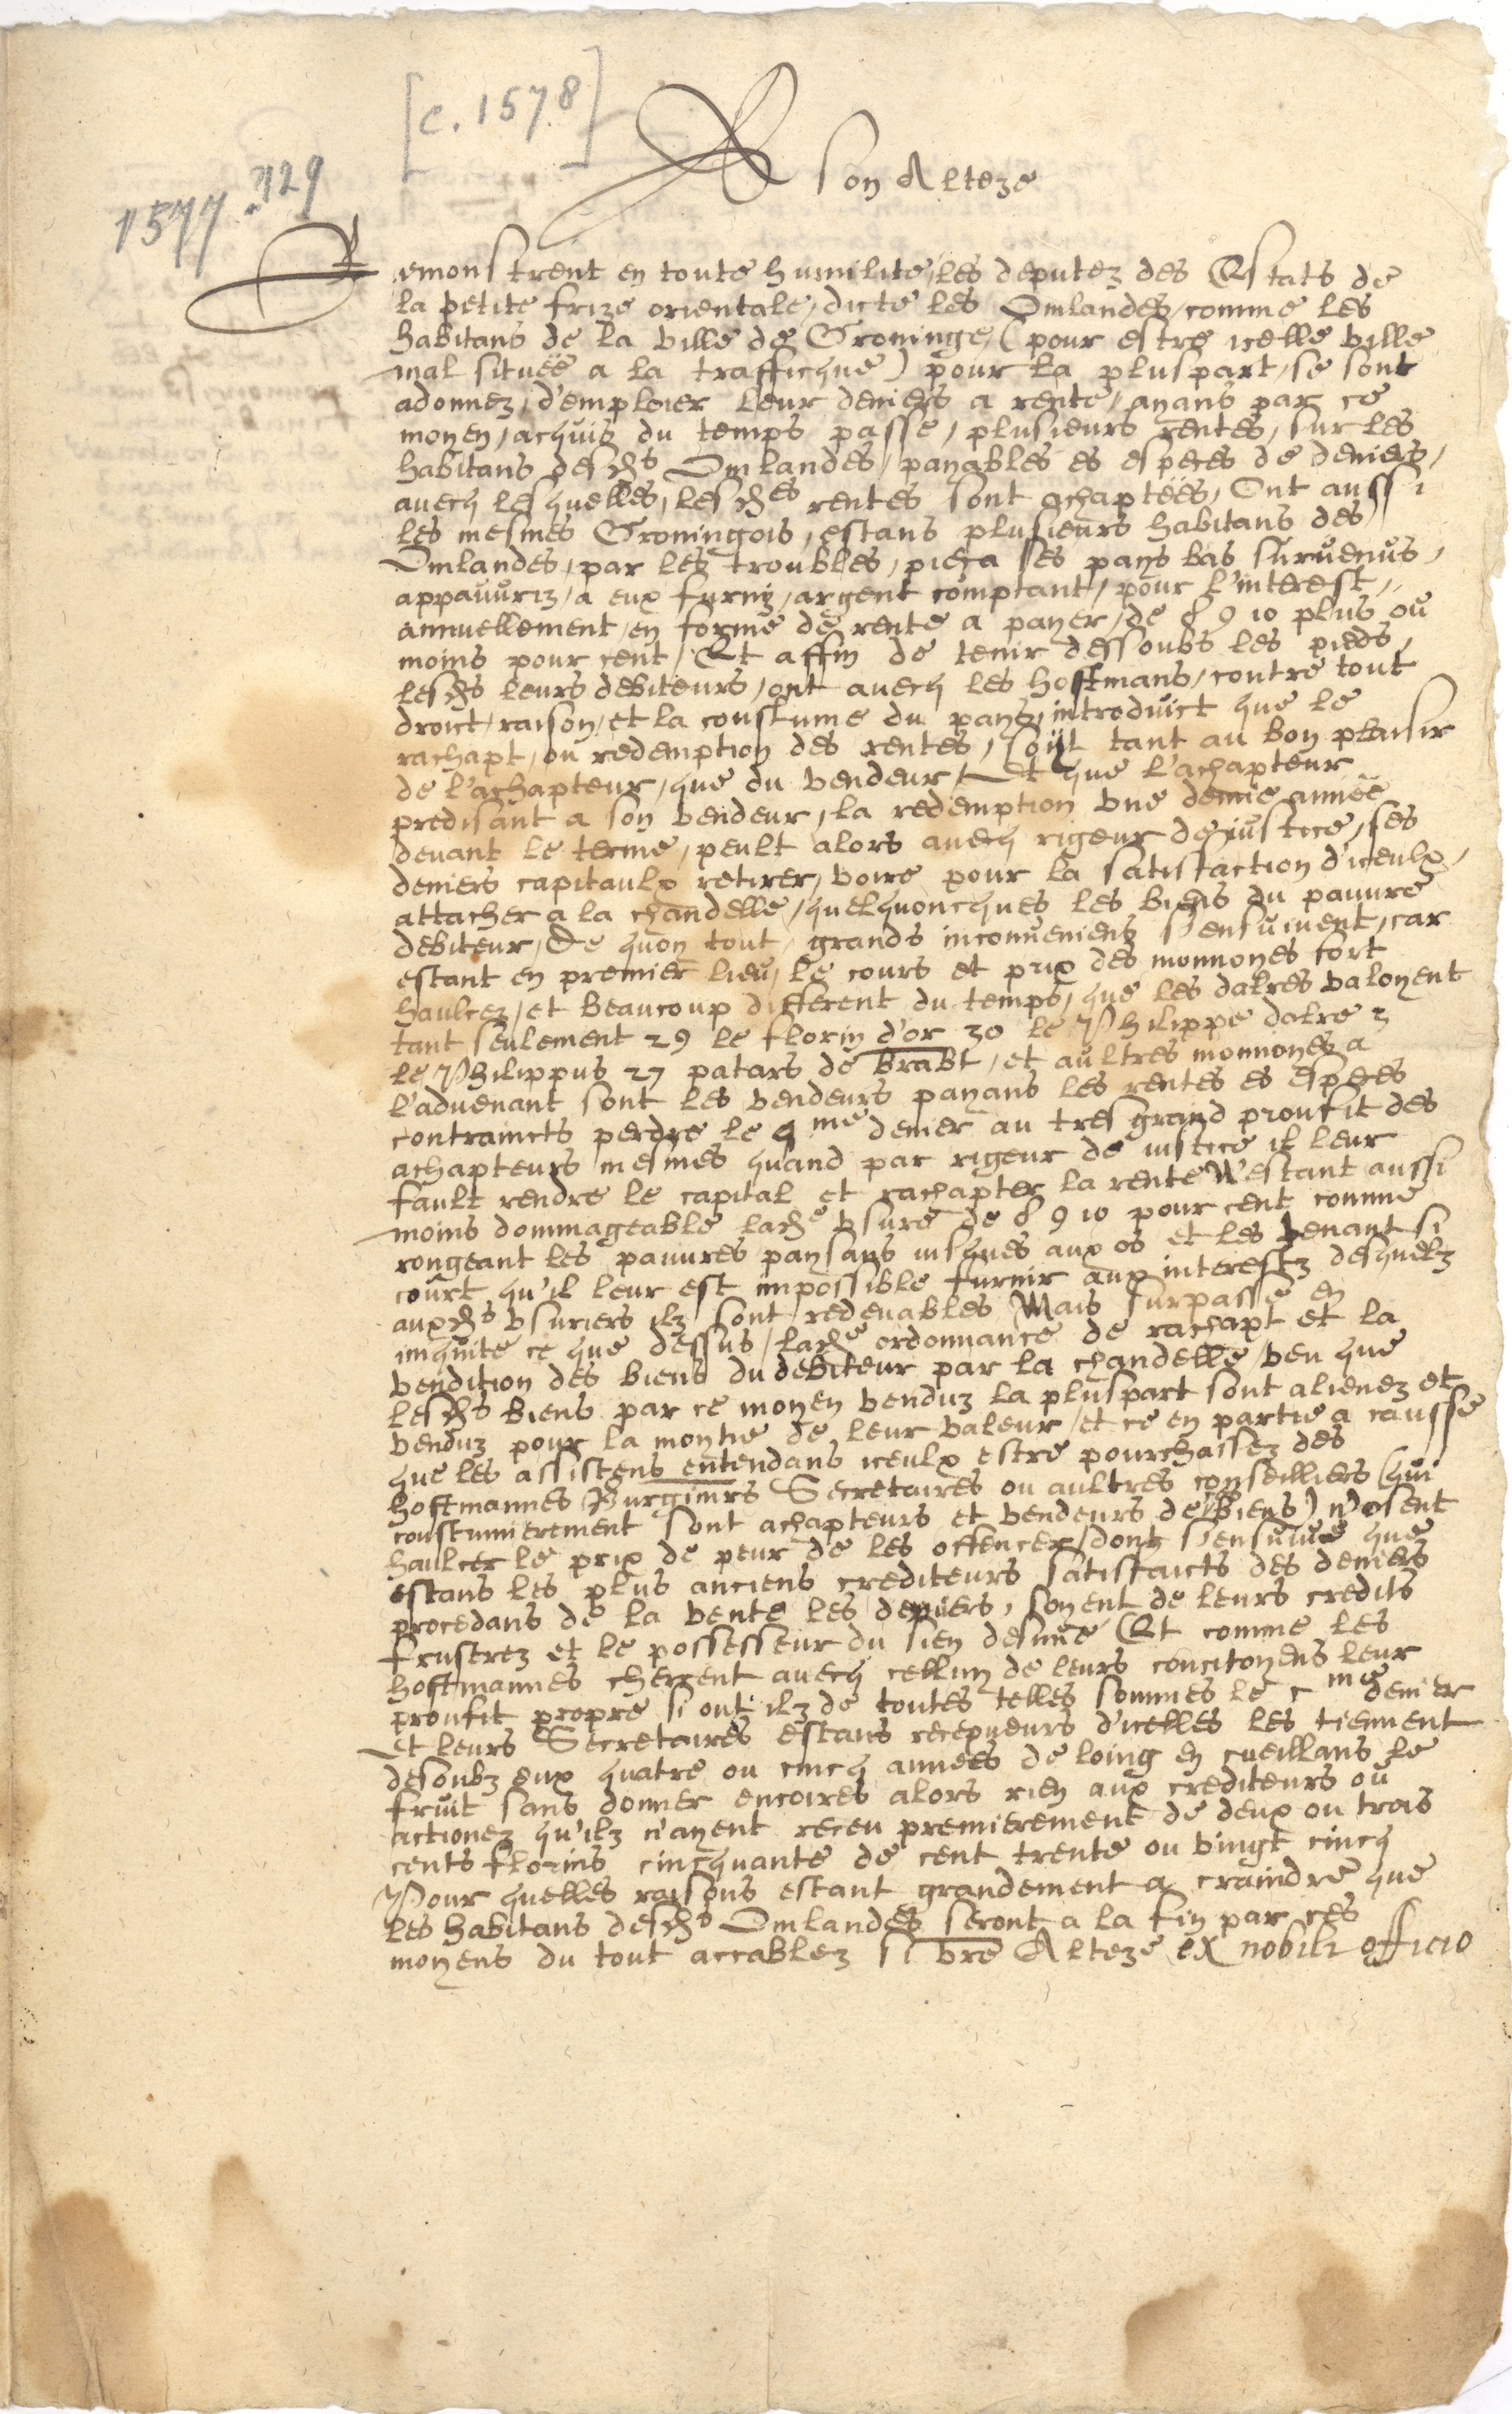 [c. 1578]
1577. 729
A son Alteze
Remonstrent en toute humilite, les deputez des Estats de
la petite frize orientale, dicte les Omlandes, comme les
habitans de la ville de Groninge (pour estre icelle ville
mal située a la trafficque) pour la pluspart, se sont
adonnez, d'emploier leur deniers a rente, ayans par ce
moyen, acquis du temps passe, plusieurs rentes, sur les
habitans desds Omlandes, payables es especes de deniers,
avecq lesquelles, lesdes rentes sont achaptëes, Ont aussi
les mesmes Groningois, estans plusieurs habitans des
Omlandes, par les troubles, pieça es pays bas survenus,
appauvriz, a eux furny, argent comptant, pour l'interest,
annuellement, en forme de rente a payer, de 8 9 10 plus ou
moins pour cent, Et affin de tenir dessoubs les pieds,
lesds leurs debiteurs, ont avecq les hoffmans, contre tout
droict, raison, et la coustume du pays, introduict que le
rachapt, ou redemption des rentes, soijt tant au bon plaisir
de l'achapteur, que du vendeur, Et que l'achapteur
predisant a son vendeur, la redemption vne demie année
devant le terme, peult alors avecq rigeur de justice, ses
deniers capitaulx retirer, voire pour la satisfaction d'iceulx,
attacher a la chandelle, quelquoncques les biens du pauvre
debiteur, De quoy tout, grands inconveniens s'ensuivent, car
estant en premier lieu, le cours et prix des monnoyes fort
haulcez, et beaucoup different du temps, que les dalres valoyent
tant seulement 29 le florin d'or 30 le Philippe dalre 3
le Philippus 27 patars de Brabt, et aultres monnoyes a
l'advenant sont les vendeurs payans les rentes es especes
contraincts perdre le 4me denier au tres grand proufit des
achapteurs mesmes quand par rigeur de justice il leur
fault rendre le capital et rachapter la rente N'estant aussi
moins dommageable lade vsure de 8 9 10 pour cent comme
rongeant les pauvres paysans jusques aux os et les tenant si
court qu'il leur est impossible furnir aux interestz desquelz
auxds vsuriers ilz sont redevables Mais surpasse en
iniquite ce que dessus, lade ordonnance de rachapt et la
vendition des biens du debiteur par la chandelle, veu que
lesds biens par ce moyen venduz la pluspart sont alienez et
venduz pour la moytie de leur valeur, et ce en partie a causse
que les assistens entendans iceulx estre pourchassez des
hoffmannes Burgimrs Secretaires ou aultres conseilliers (qui
coustumierement sont achapteurs et vendeurs des biens) n'osent
haulcer le prix de peur de les offencer, dont s'ensuive que
estans les plus anciens crediteurs satisfaicts des deniers
procedans de la vente les derniers, soyent de leurs credits
frustrez et le possesseur du sien desnué Et comme les
hoffmannes cherçent avecq celluy de leurs concitoyens leur
proufit propre si ont ilz de toutes telles sommes le cme denier
Et leurs Secretaires estans recepveurs d'icelles les tiennent
desoubz eux quatre ou cincq annees de loing en cueillans le
fruit sans donner encoires alors rien aux crediteurs ou
actionez qu'ilz n'ayent receu premierement de deux ou trois
cents florins cincquante de cent trente ou vingt cincq
Pour quelles raisons estant grandement a craindre que
les habitans desds Omlandes seront a la fin par ces
moyens du tout accablez si vre Alteze ex nobili officio